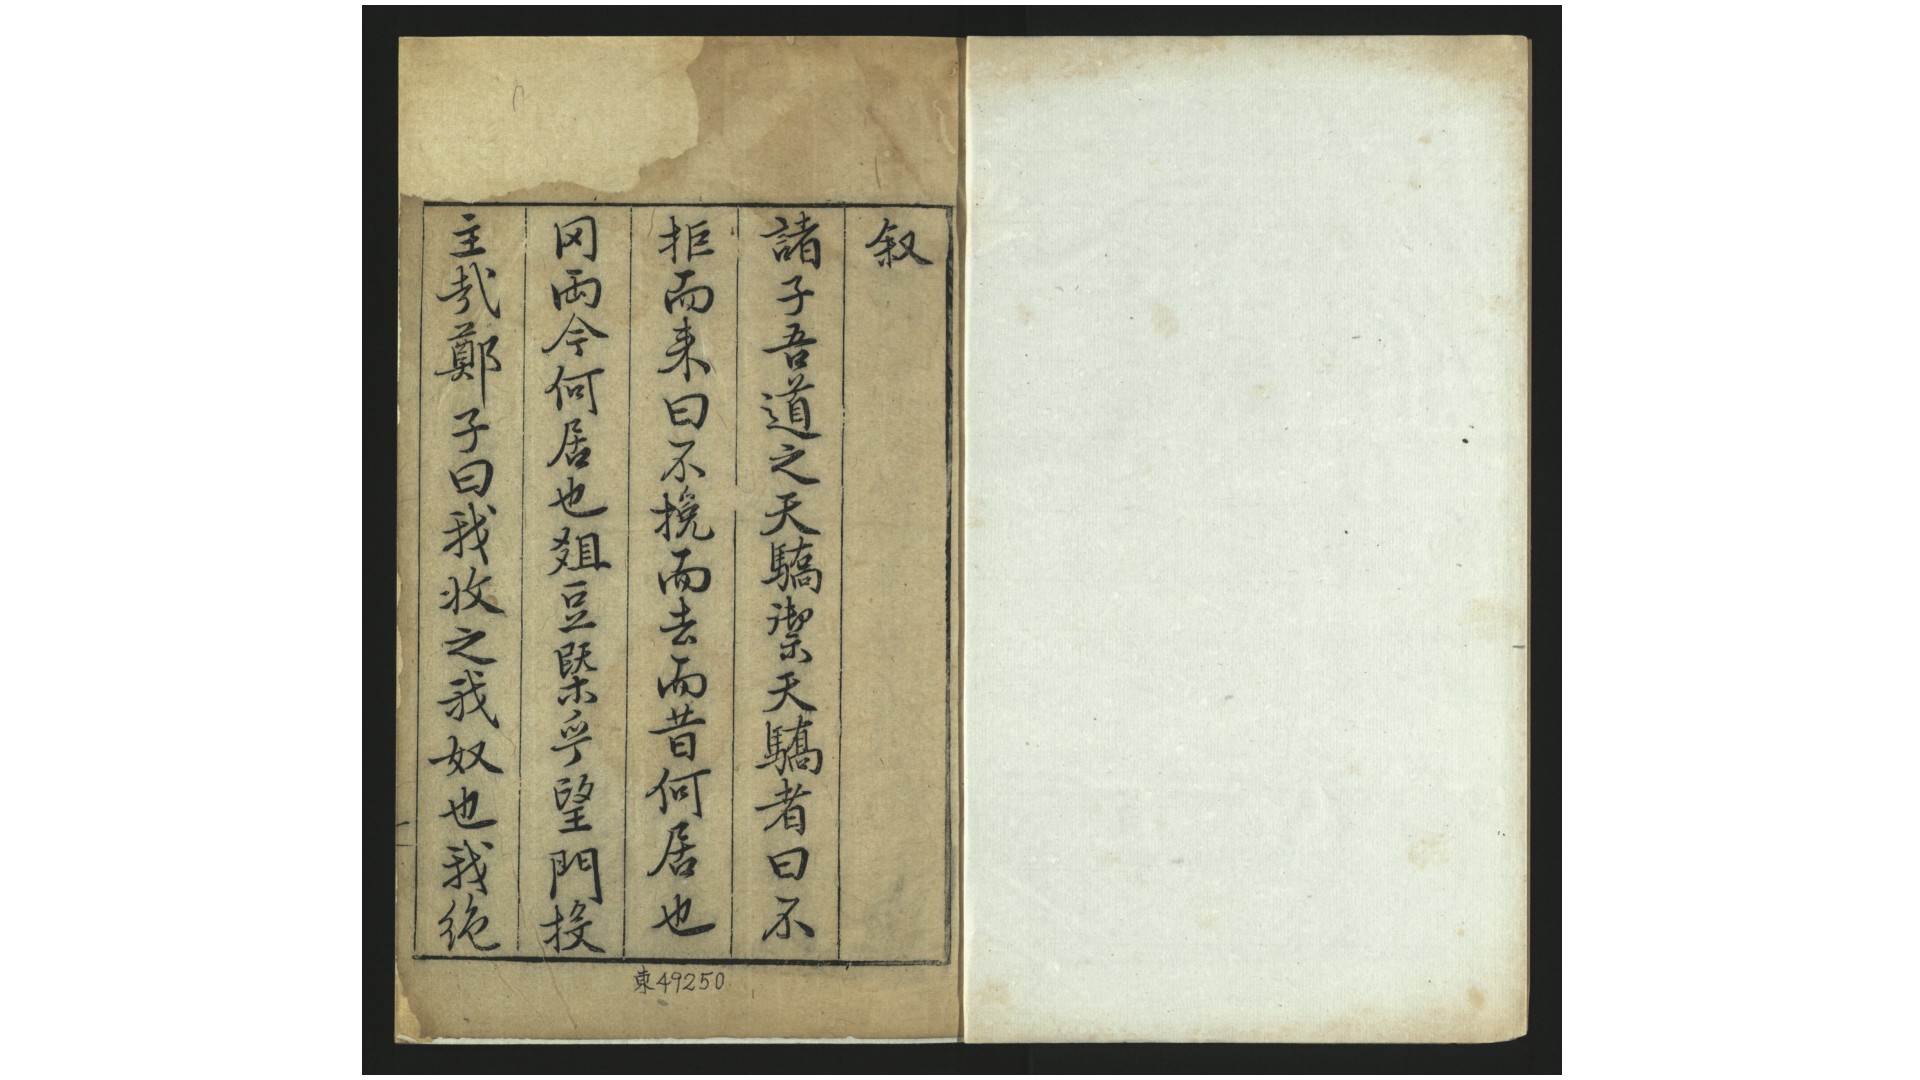 叙
諸子吾道之天驕禦天驕者曰不
拒而来曰不挽而去而昔何居也
罔兩今何居也爼豆槩乎望門投
主哉鄭子曰我收之我奴也我絶
東49250